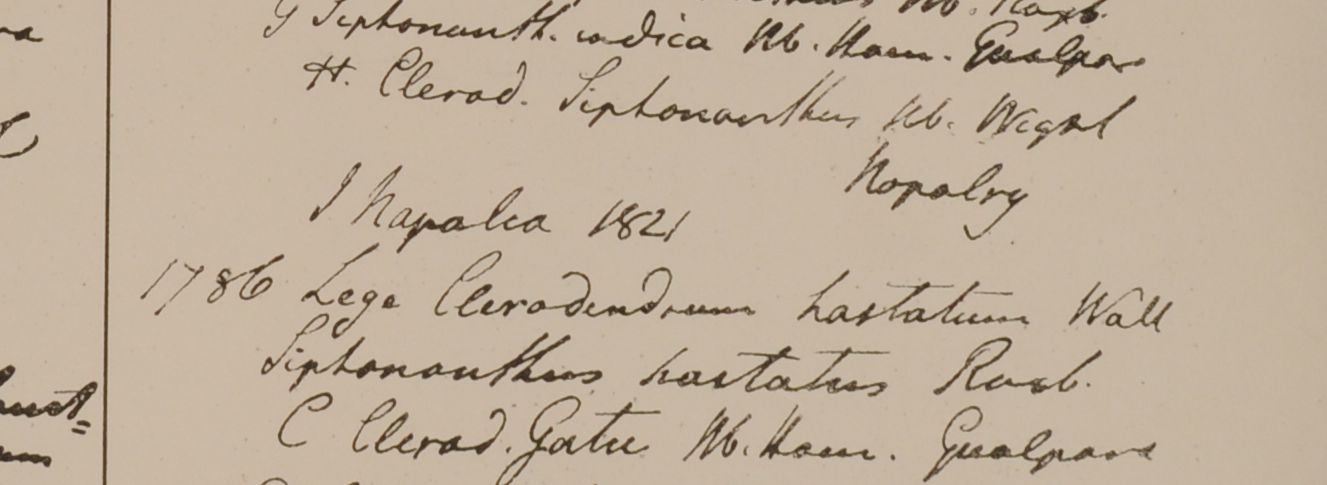 Hb. Roxb.
G Siphonanth. indica Hb. Ham. Gualpara
H. Clerod. Siphonanthus Hb. Wight
Nopalry
I Napalia 1821
1786 Lege Clerodendrum hastatum Wall
Siphonanthus hastatus Roxb.
C Clerod. Gatu Hb. Ham. Gualpara